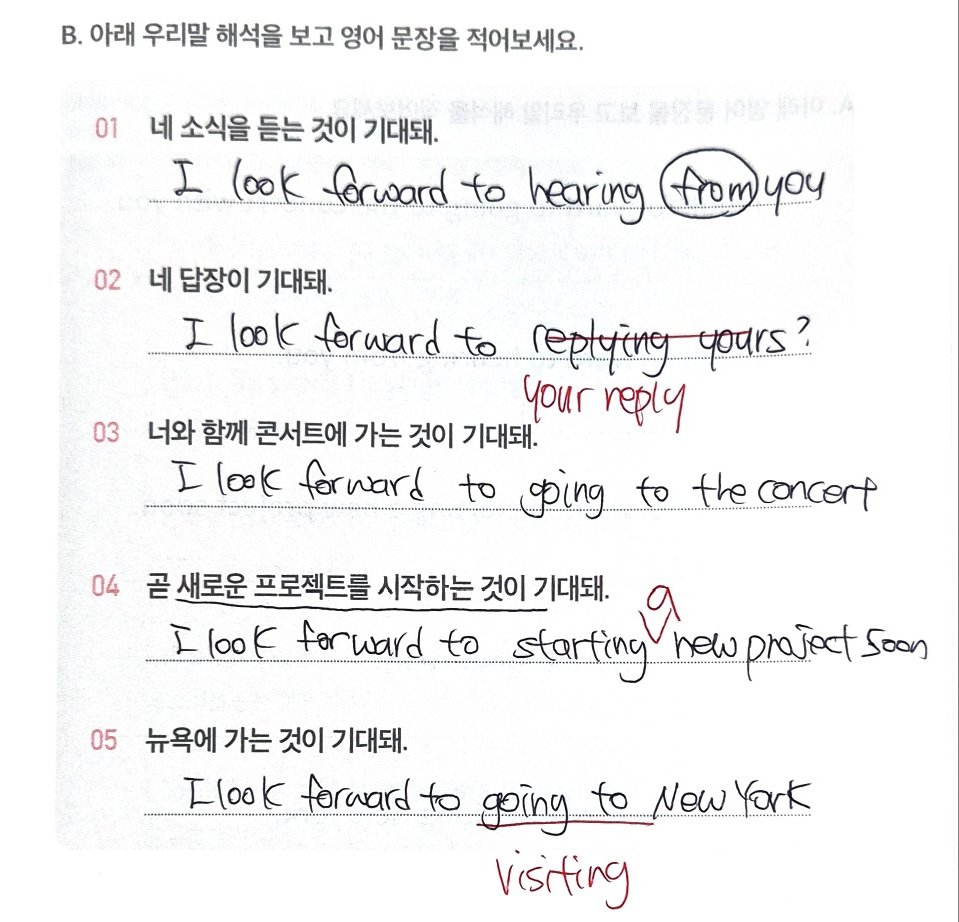 B. 아래 우리말 해석을 보고 영어 문장을 적어보세요.
01 네 소식을 듣는 것이 기대돼.
I look forward to hearing from you
02 네 답장이 기대돼.
I look forward to replying yours?
your reply
03 너와 함께 콘서트에 가는 것이 기대돼.
I look forward to going to the concert
04 곧 새로운 프로젝트를 시작하는 것이 기대돼.
a
I look forward to starting new project soon
05 뉴욕에 가는 것이 기대돼.
I look forward to going to New York
visiting